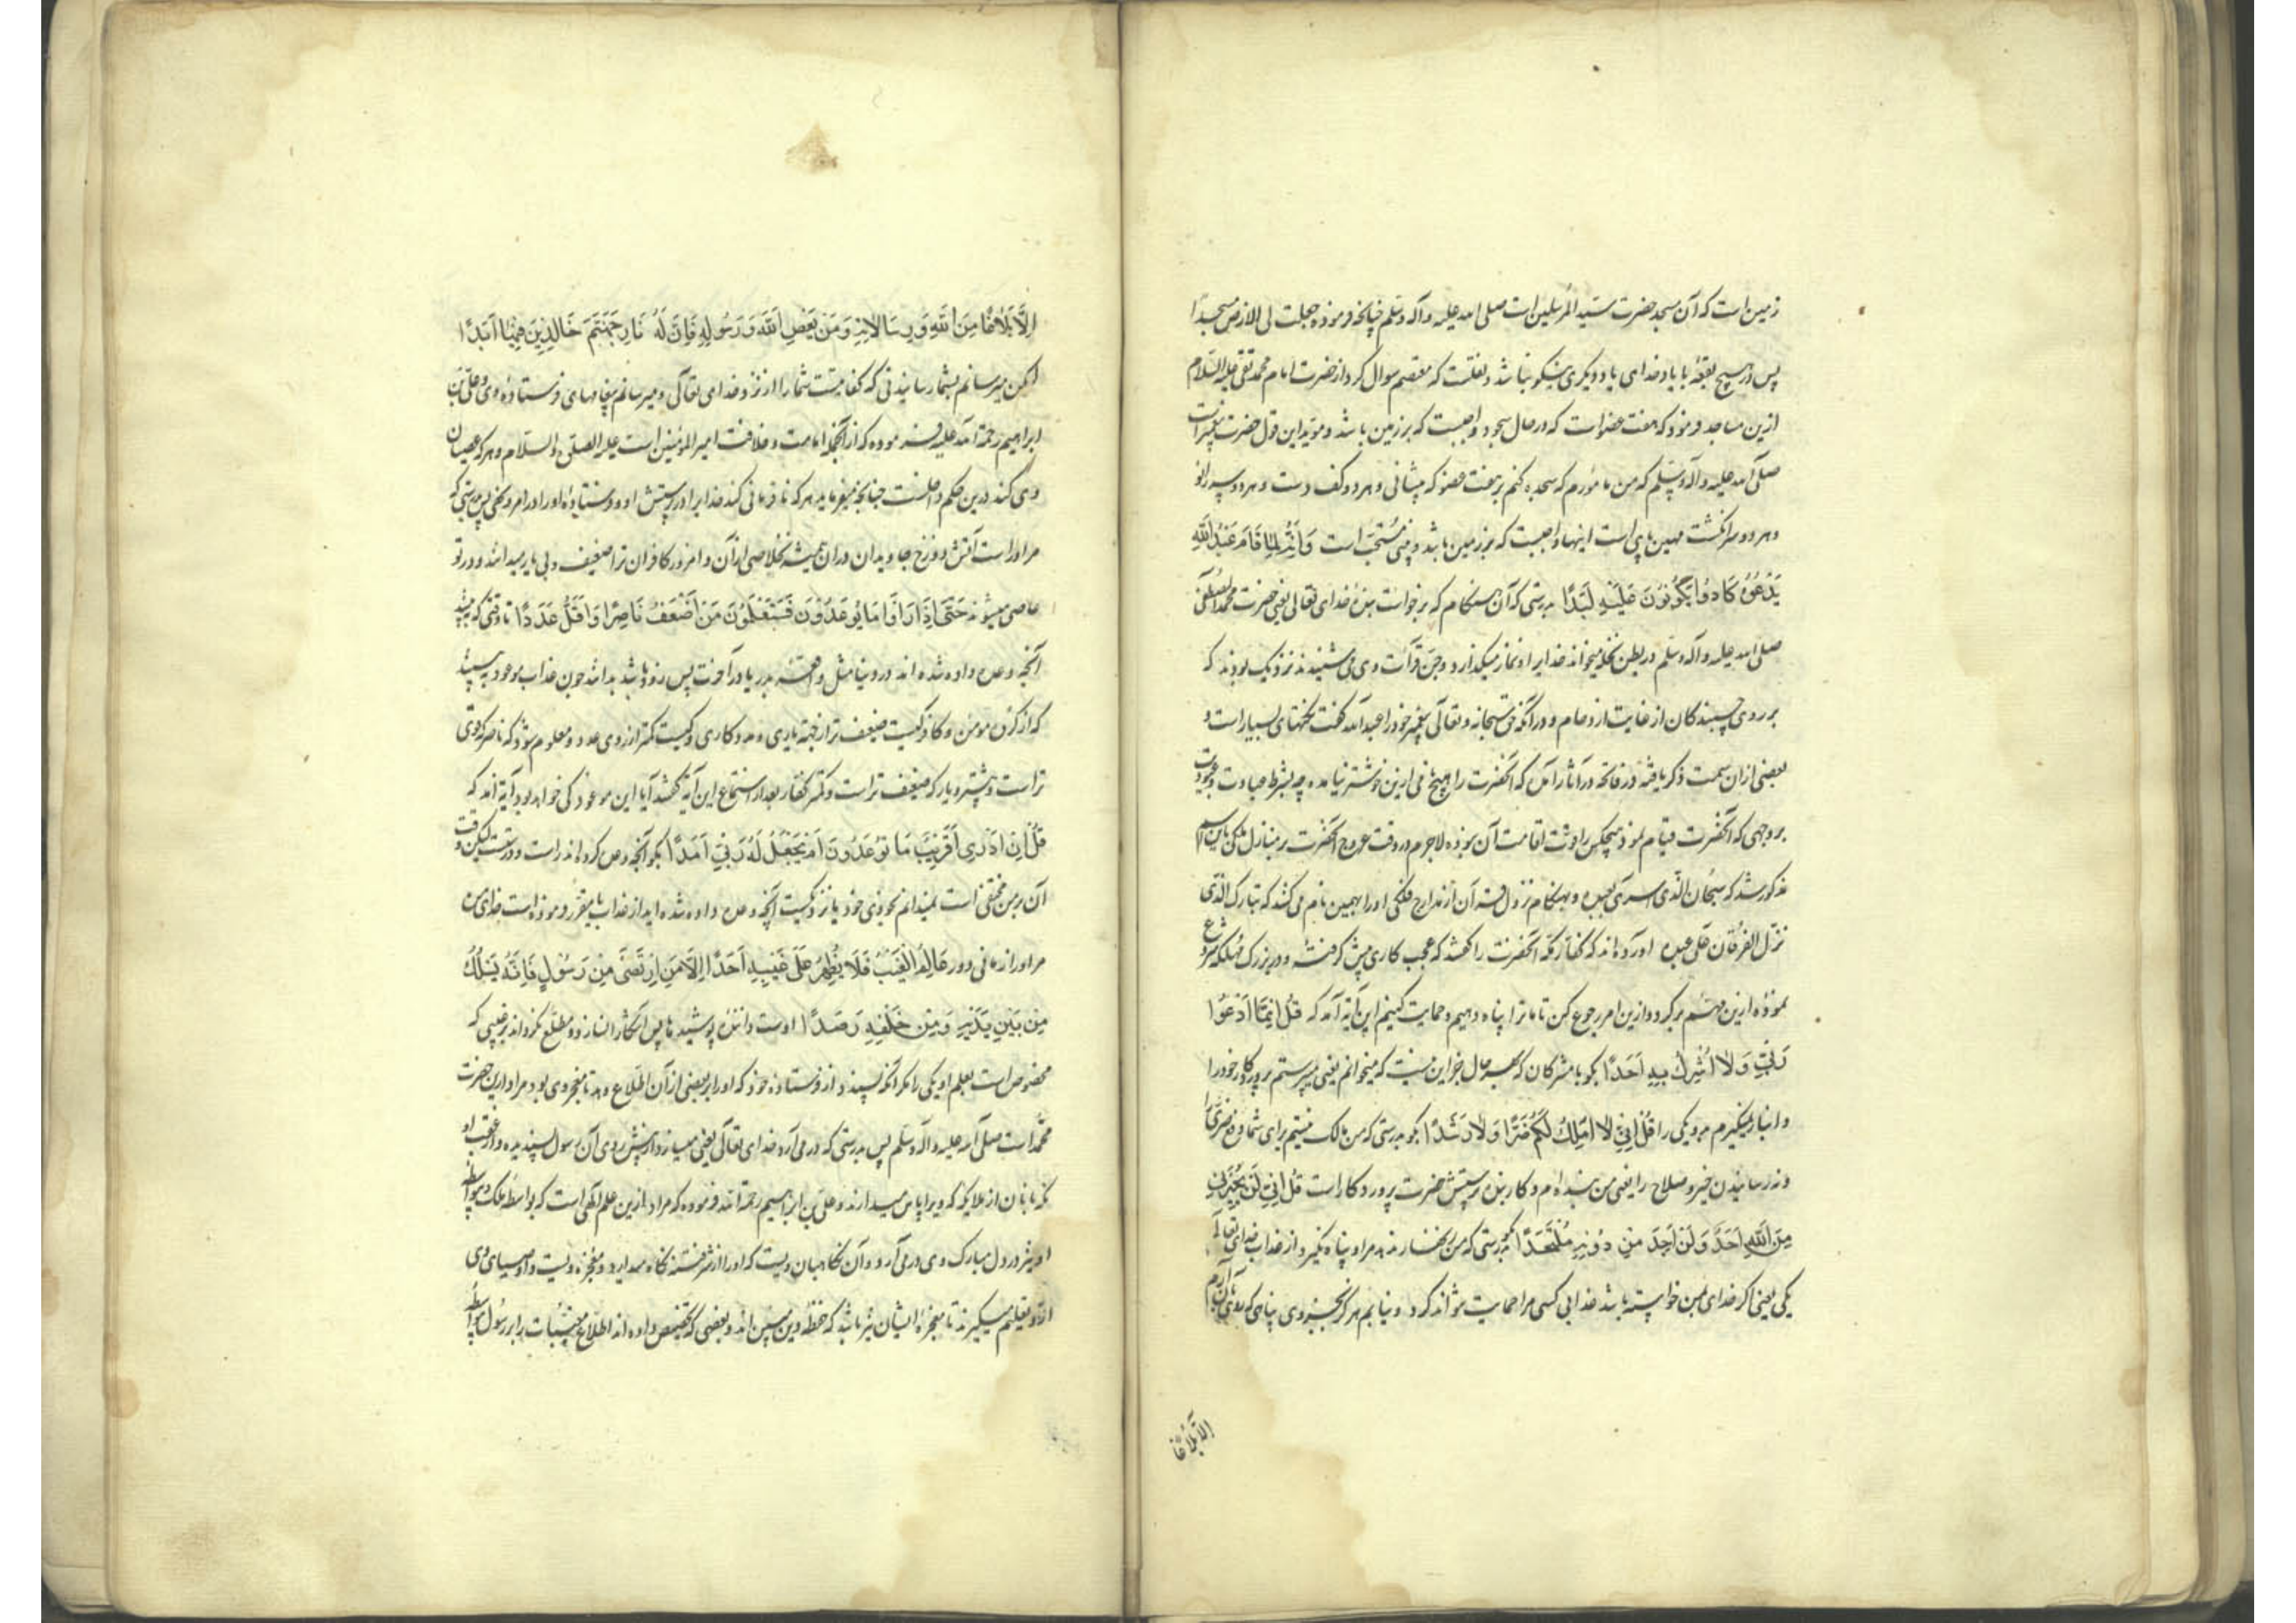 زمین است که آن مسجد حضرت سید المرسلین است صلی الله علیه و آله وسلم چنانچه فرموده جعلت لی الارض مسجدا
پس در هیچ بقعه با یاد خدای یاد دیگری نیکو نباشد و نقلست که معتصم سوال کرد از حضرت امام محمد تقی علیه السلام
ازین مساجد فرمود که هفت عضو است که در حال سجود واجبست که بر زمین باشد و موید این قول حضرت پیغمبر است
صلی الله علیه و آله وسلم که من مامورم که سجده کنم بر هفت عضو که پیشانی و هر دو کف دست و هر دو سر زانو
و هر دو سر انگشت مهین پای است اینها واجبست که بر زمین باشد و بینی مستحب است وَاَنَّهُ لَمَّا قَامَ عَبْدُ اللَّهِ
يَدْعُوهُ كَادُوا يَكُونُونَ عَلَيْهِ لِبَدًا بدرستی که آن هنگام که برخواست بندهٔ خدای تعالی یعنی حضرت محمد المصطفی
صلی الله علیه و آله وسلم در بطن نخله میخواند خدایرا و نماز میگذارد و جن قرآت وی می شنیدند نزدیک بودند که
بر روی چسبندگان از غایت ازدحام و در آنکه حق سبحانه و تعالی پیغمبر خود را عبد الله گفت نکتهای بسیار است و
بعضی ازان سمت ذکر یافته در فاتحه و در آثار آمده که آنحضرت را هیچ نامی ازین خوشتر نیامده چه بشرط عبادت و عبودیت
بر وجهی که آنحضرت قیام نمود هیچکس را قوت اقامت آن نبوده لاجرم در وقت عروج آنحضرت بر منازل ملکی باین اسم
مذکور شد که سبحان الذی اسری بعبده و بهنگام نزول قرآن از مدارج فلکی او را بهمین نام می کشد که تبارک الذی
نزل الفرقان علی عبده آورده اند که کفار مکه آنحضرت را گفتند که عجب کاری پیش گرفته و در بزرگ مهلکه شروع
نموده ازین مهم برگرد و ازین امر رجوع کن تا ما ترا پناه دهیم و حمایت کنیم این آیه آمد که قُلْ اِنَّمَا اَدْعُوا
رَبِّي وَلَا اُشْرِكُ بِهِ اَحَدًا بگو با مشرکان که بهمه حال جز این نیست که میخوانم یعنی میپرستم پروردگار خود را
و انباز نمیگیرم مرو یکی را قُلْ اِنِّي لَا اَمْلِكُ لَكُمْ ضَرًّا وَلَا رَشَدًا بگو بدرستی که من مالک نیستم برای شما دفع ضرری را
و نه رسانیدن خیر و صلاح را یعنی من بنده ام و کار بنده پرستش حضرت پروردگار است قُلْ اِنِّي لَنْ يُجِيرَنِي
مِنَ اللَّهِ اَحَدٌ وَلَنْ اَجِدَ مِنْ دُونِهِ مُلْتَحَدًا بگو بدرستی که من زنهار ندهد مرا و پناه نگیرد از عذاب خدای تعالی
یکی یعنی اگر خدای بمن خواسته باشد عذابی کسی مرا حمایت نتواند کرد و نیابم هرگز بجز وی پناهی که بدو
الا بلاغا
اِلَّا بَلَاغًا مِنَ اللَّهِ وَرِسَالَاتِهِ وَمَنْ يَعْصِ اللَّهَ وَرَسُولَهُ فَاِنَّ لَهُ نَارَ جَهَنَّمَ خَالِدِينَ فِيهَا اَبَدًا
لیکن میرسانم بشما رسانیدنی که کفایتست شما را از نزد خدای تعالی و میرسانم پیغامهای فرستادهٔ وی و علی بن
ابراهیم رحمة الله علیه فرموده که از آنجمله امامت و خلافت امیر المؤمنین است علیه الصلوة و السلام و هر که عصیان
وی کند درین حکم داخلست چنانچه میفرماید هر که نافرمانی کند خدایرا در پرستش او و فرستادهٔ او را در امر و نهی پس بدرستی که
مر او راست آتش دوزخ جاویدان در ان همیشه نه خلاصی ازان و امروز کافران ترا ضعیف و بی یار میدانند و در تو
عاصی میشوند حَتَّى اِذَا رَاَوْا مَا يُوعَدُونَ فَسَيَعْلَمُونَ مَنْ اَضْعَفُ نَاصِرًا وَاَقَلُّ عَدَدًا تا وقتی که ببینند
آنچه وعده داده شده اند در دنیا مثل واقعهٔ بدر یا در آخرت پس زود باشد بدانند چون عذاب موعود به بینند
که از گروه مومن و کافر کیست ضعیف تر از جهت یاری و مددکاری و کیست کمتر از روی عدد و معلوم شود که ناصر که قوی
تر است و بیشتر و یار که ضعیف تر است و کمتر کفار بعد از استماع این آیه گفتند آیا این موعود کی خواهد بود آیه آمد که
قُلْ اِنْ اَدْرِي اَقَرِيبٌ مَا تُوعَدُونَ اَمْ يَجْعَلُ لَهُ رَبِّي اَمَدًا بگو آنچه وعده کرده اند راست و درستست لیکن وقت
آن بر من مختفی است نمیدانم بخودی خود یا نزدیکست آنچه وعده داده شده اید از عذاب یا مقرر فرموده است خدای من
مر او را زمانی دور عَالِمُ الْغَيْبِ فَلَا يُظْهِرُ عَلَى غَيْبِهِ اَحَدًا اِلَّا مَنِ ارْتَضَى مِنْ رَسُولٍ فَاِنَّهُ يَسْلُكُ
مِنْ بَيْنِ يَدَيْهِ وَمِنْ خَلْفِهِ رَصَدًا اوست دانندهٔ پوشیدها پس آشکارا نسازد و مطلع نگرداند بر غیبی که
مخصوص است بعلم او یکی را مگر آنکه پسندد از فرستادهٔ خود که او را بر بعضی از آن اطلاع دهد تا معجزهٔ وی بود مراد ازین حضرت
محمد است صلی الله علیه و آله وسلم پس بدرستی که در می آرد خدای تعالی یعنی میسازد از پیش روی آن رسول پسندیده و از عقب او
نگهبانان از ملایکه که ویرا پاس میدارند و علی بن ابراهیم رحمة الله فرموده که مراد ازین علم آنکهی است که بواسطه ملک و بیواسطه
او نیز در دل مبارک وی در می آرد و آن نگاهبان ویست که او را از شر فتنه نگاه میدارد و معجزهٔ ویست و اوصیای وی
ازو تعلیم میگیرند تا معجزهٔ ایشان نیز باشد که حفظهٔ دین مبین اند و بعضی که تخصیص داده اند اطلاع مغیبات را بر رسول بواسطه